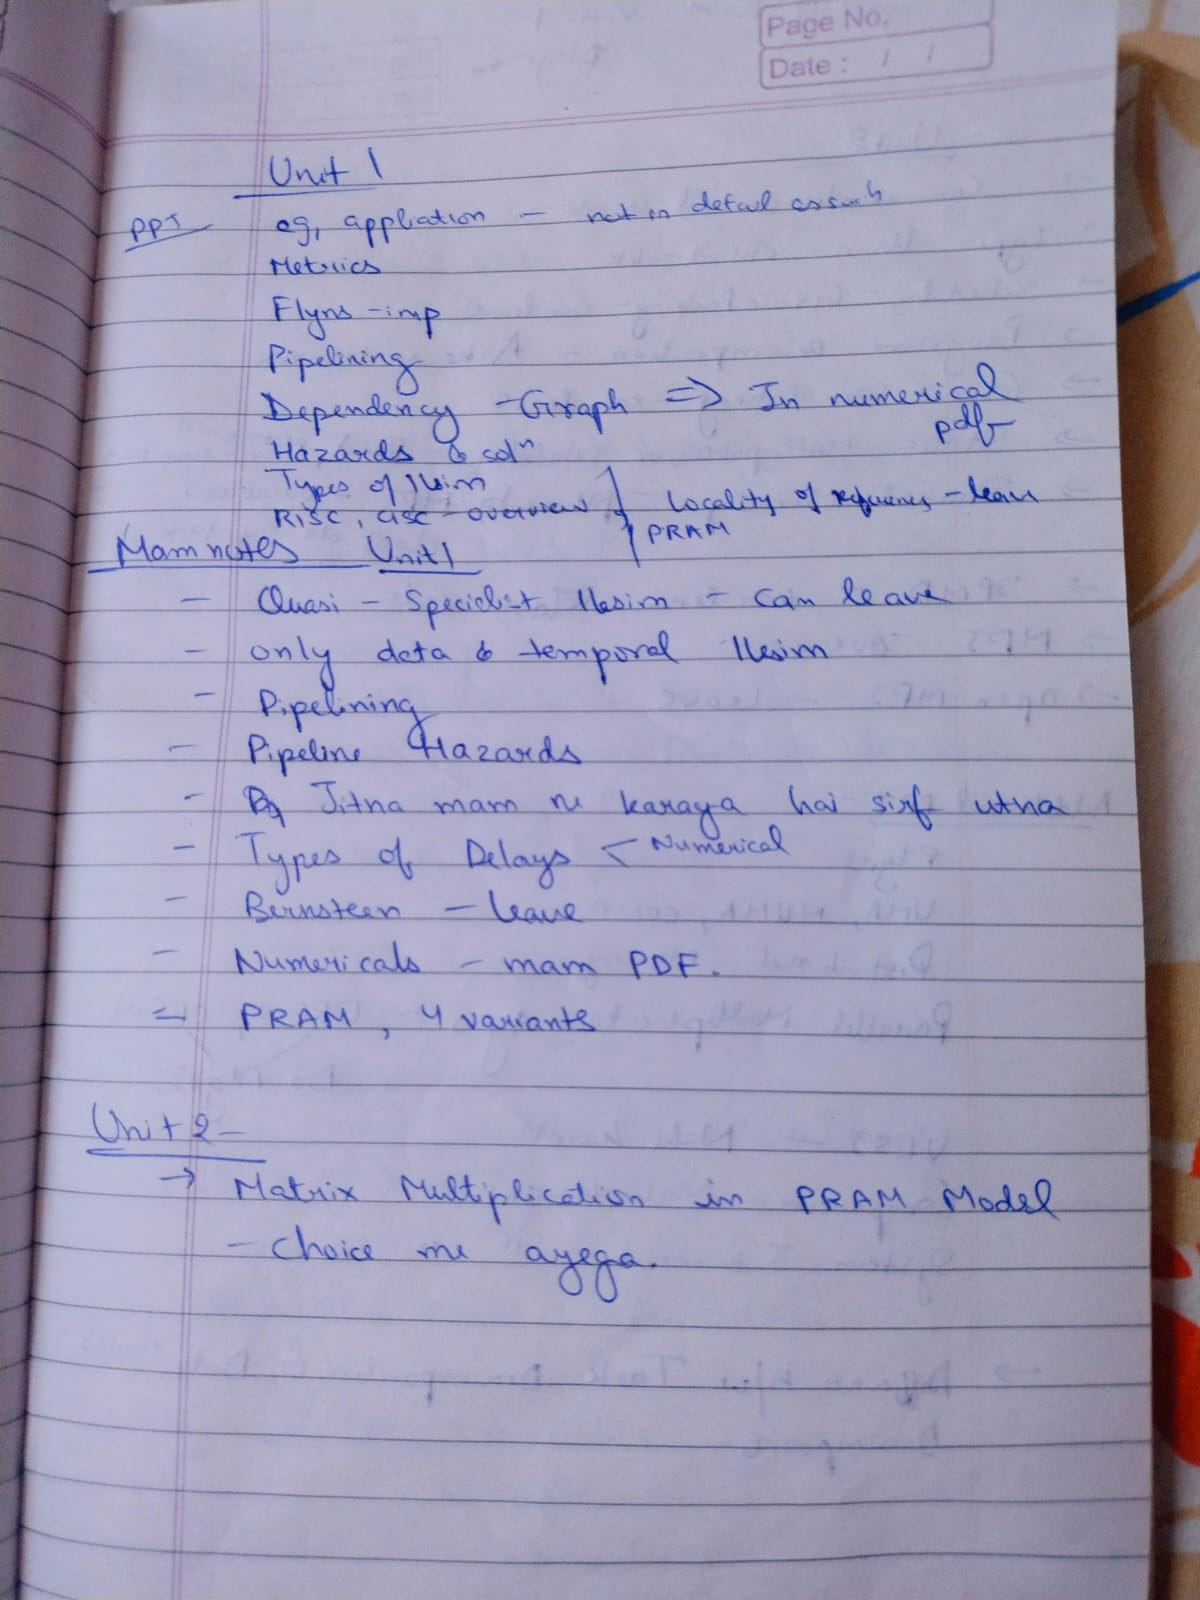 Page No.
Date : / /
Unit 1
PPT eg, appliation - not in detail as such
Metrics
Flyns - imp
Pipelining
Dependency - Graph => In numerical pdf
Hazards & solⁿ
Types of ||sim
RISC, CISC - overview } Locality of - leave
PRAM
Mam notes Unit 1
- Quasi - ||lesim - can leave
- only data & temporal ||lesim
- Pipelining
- Pipeline Hazards
- Jitna mam ne karaya hai sirf utna
- Types of Delays < Numerical
- Bernsteen - leave
- Numericals - mam PDF.
- PRAM, 4 variants
Unit 2 -
→ Matrix Multiplication in PRAM Model
- choice me ayega.